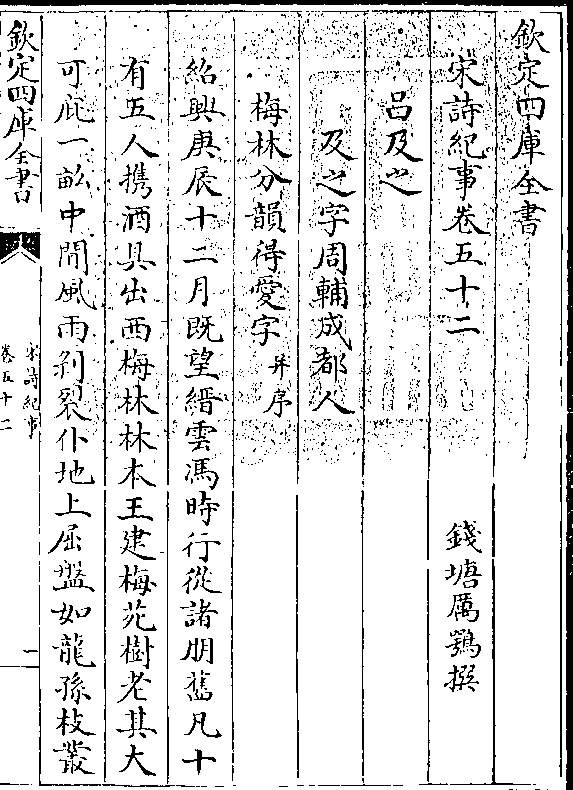 欽定四庫全書
宋詩紀事卷五十二
錢塘厲鶚撰
呂及之
及之字周輔成都人
梅林分韻得愛字并序
紹興庚辰十二月既望縉雲馮時行從諸朋舊凡十
有五人攜酒具出西梅林林本王建梅苑樹老其大
可庇一畝中間風雨剥裂仆地上屈盤如龍孫枝叢
欽定四庫全書
宋詩紀事
卷五十二
一